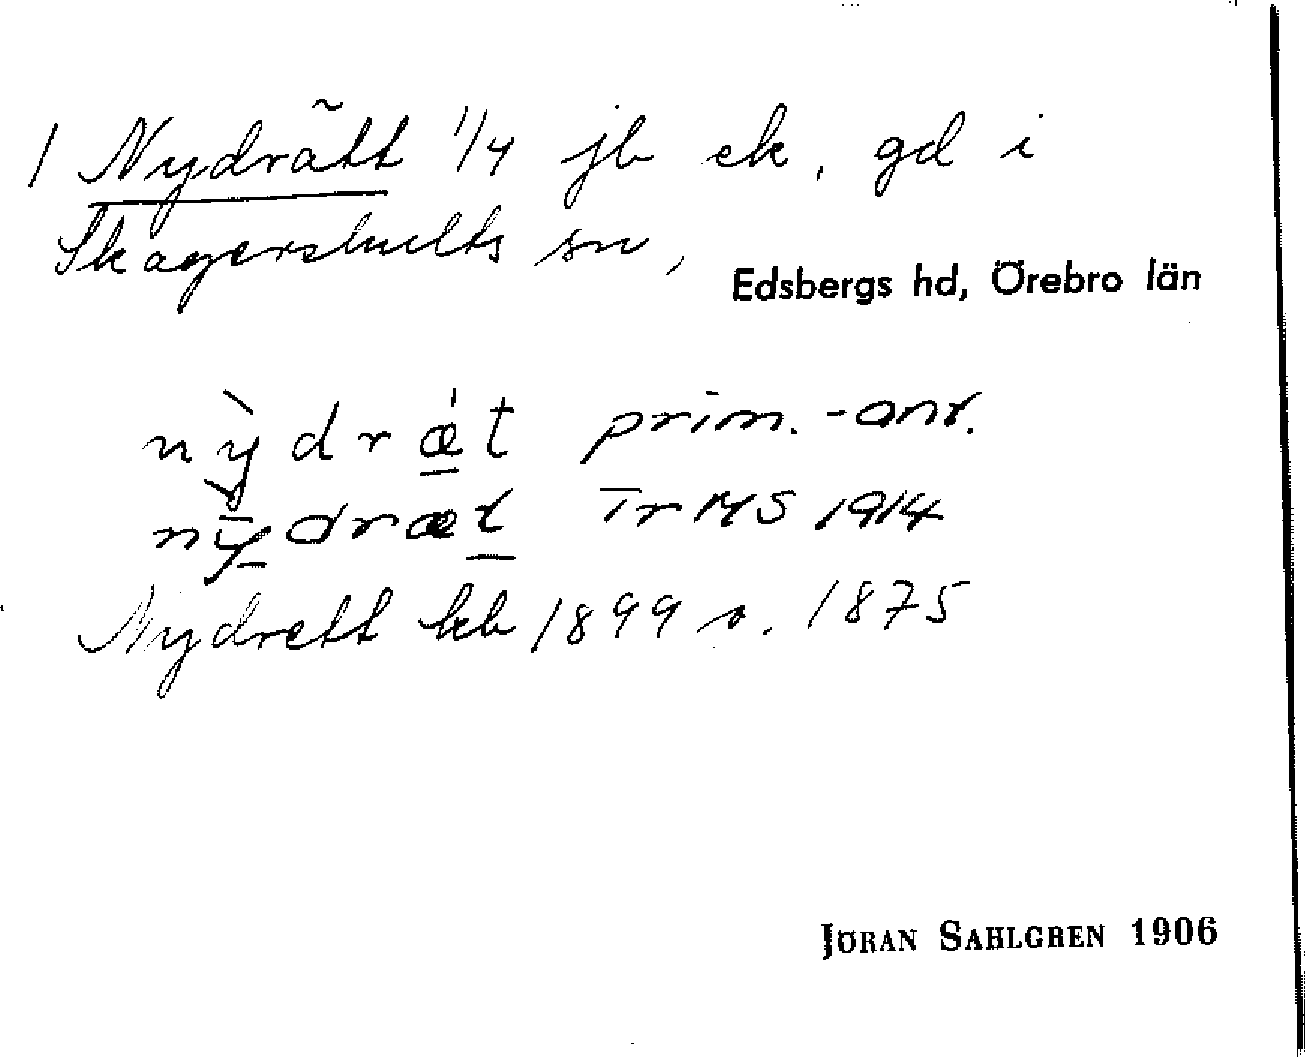 1 Nydrätt 1/4 jb ek, gd i
Skagershults sn,
Edsbergs hd, Örebro län
nỳdrǽt prim.-ant.
nỳdræt Tr MS 1914
Nydrett kb 1899 s. 1875
JÖRAN SAHLGREN 1906